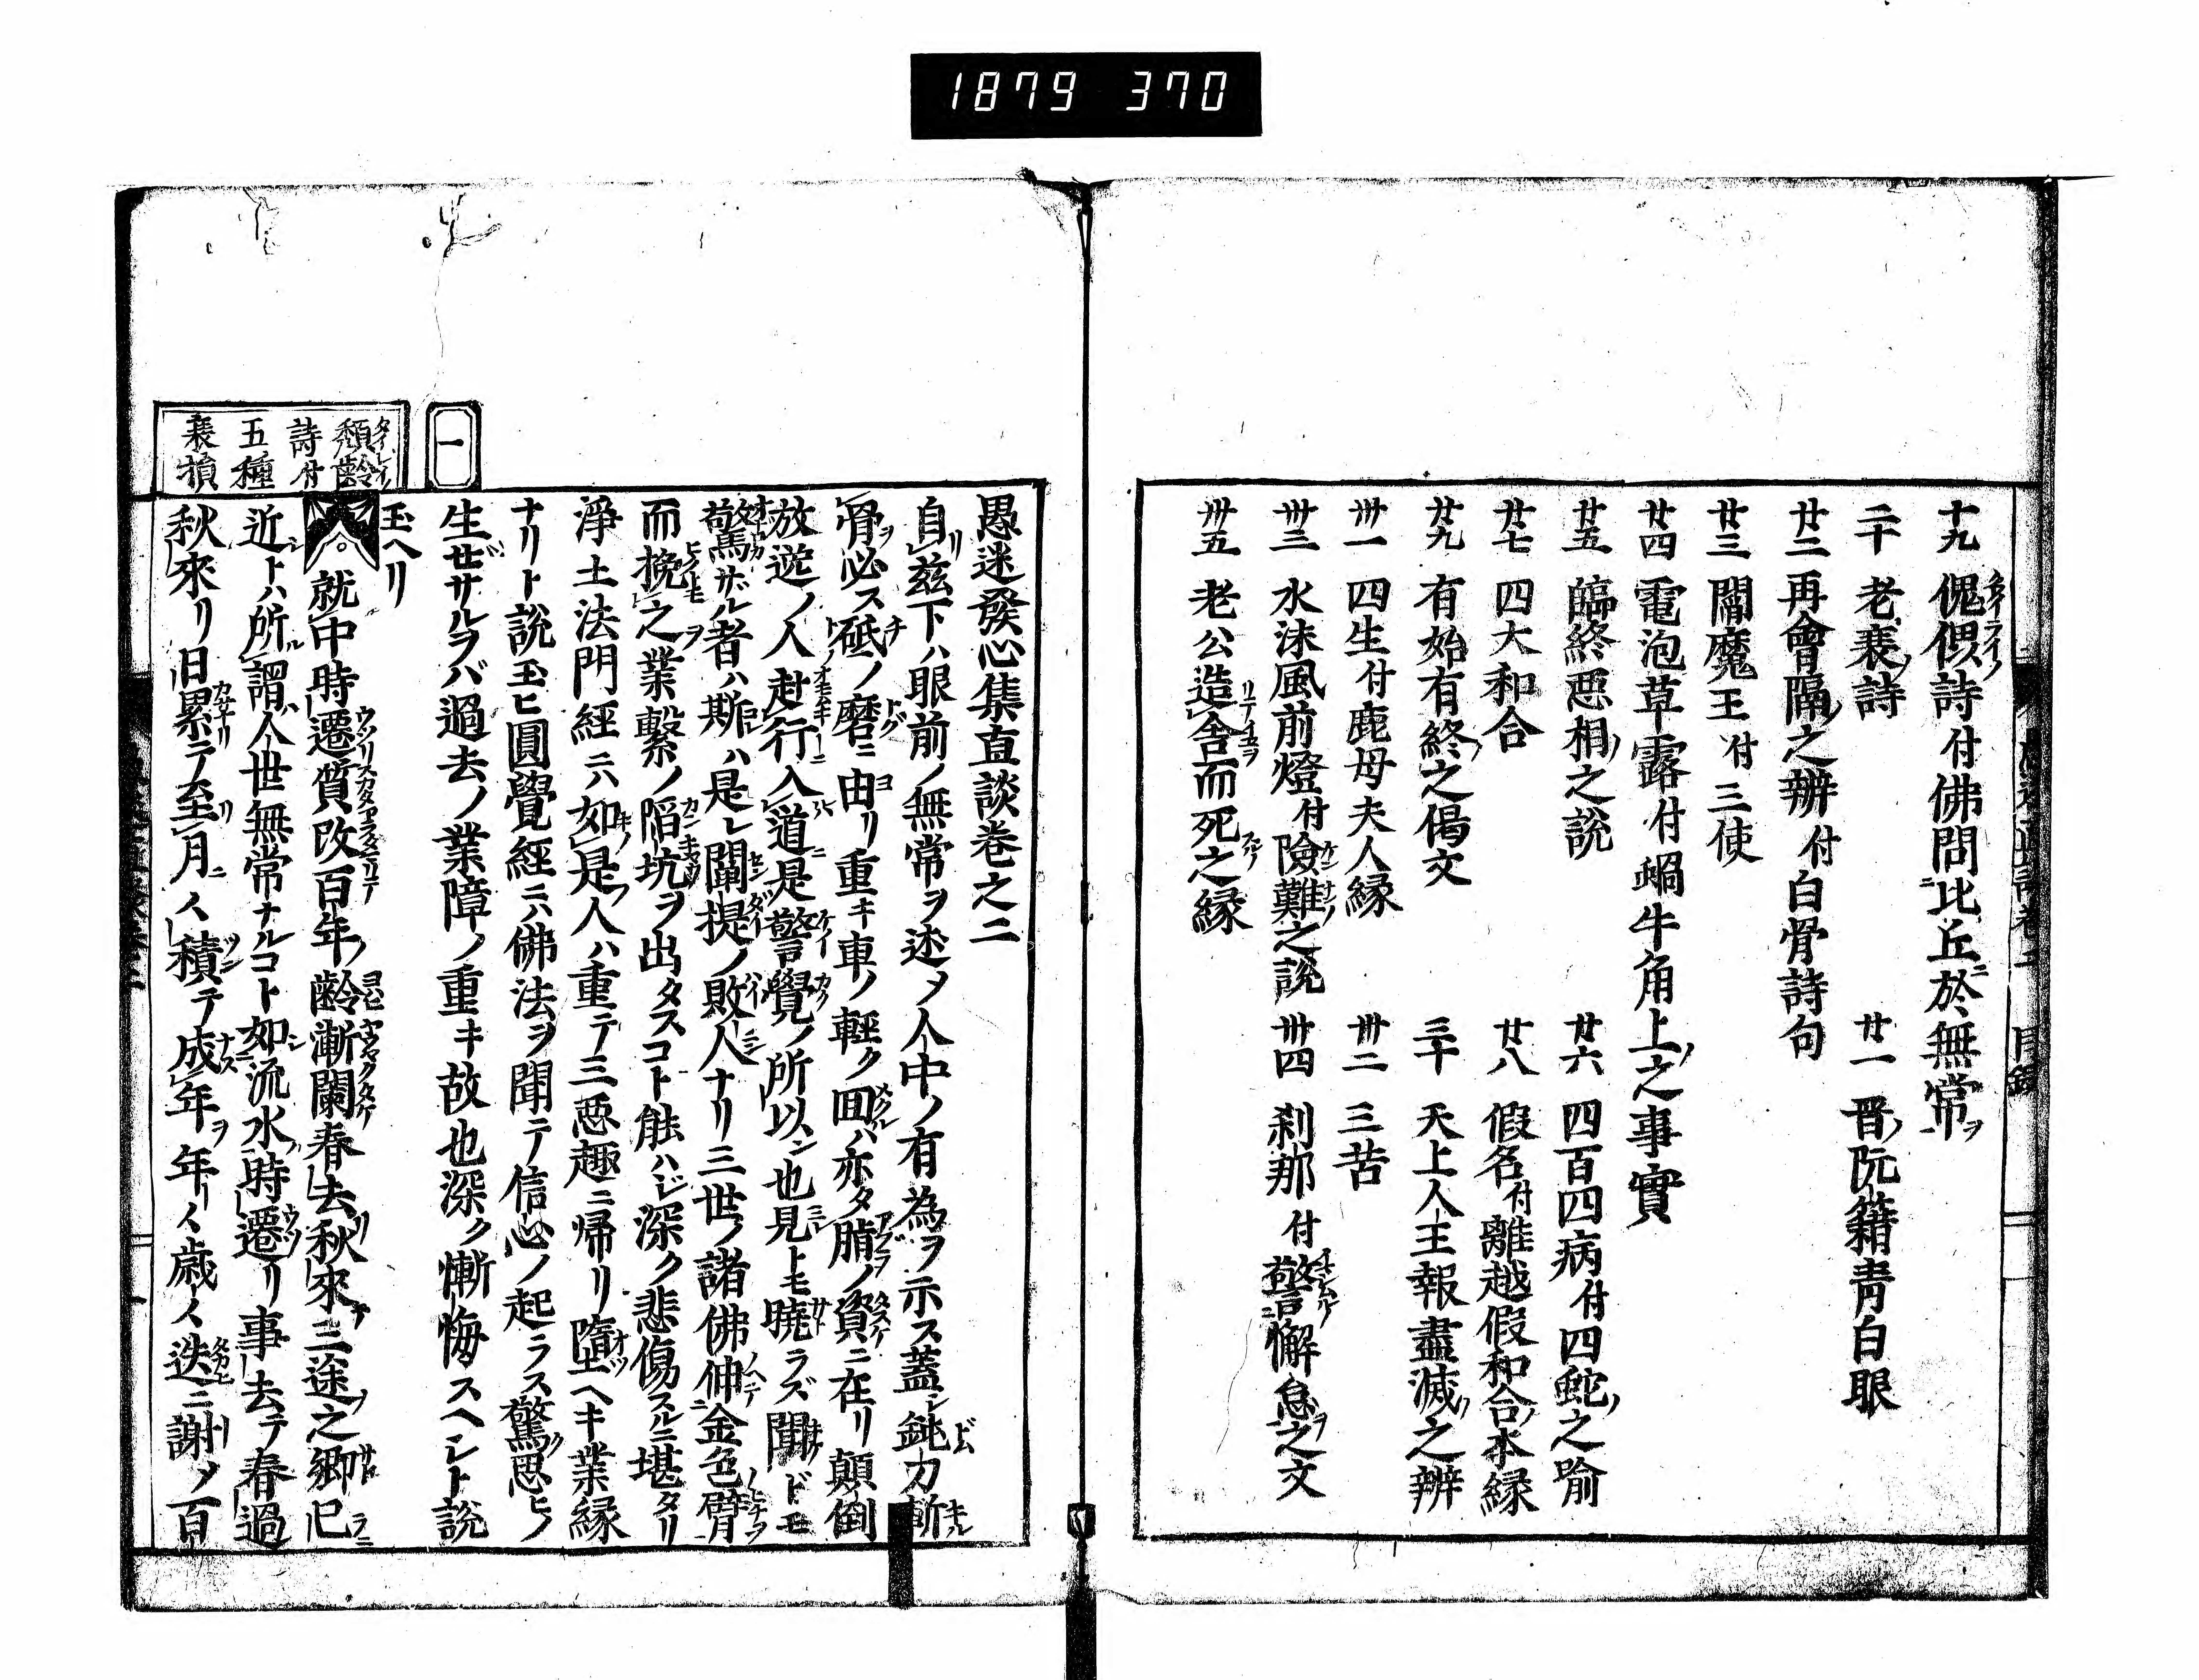 1879 370
十九 傀儡詩付佛問比丘於無常
二十 老衰詩
廿一 晋阮籍青白眼
廿二 再會隔之辨付白骨詩句
廿三 閻魔王付三使
廿四 電泡草露付蝸牛角上之事實
廿五 臨終惡相之説
廿六 四百四病付四蛇之喻
廿七 四大和合
廿八 假名付離越假和合本縁
廿九 有始有終之偈文
三十 天上人王報盡滅之辨
卅一 四生付鹿母夫人縁
卅二 三苦
卅三 水沫風前燈付險難之説
卅四 刹那付警懈怠之文
卅五 老公造舎而死之縁
愚迷發心集直談巻之二
自茲下ハ眼前ノ無常ヲ述メ人中ノ有為ヲ示ス蓋シ鈍刀斬
骨必ス砥ノ磨ニ由リ重キ車ノ輕ク囬ハ亦タ脂ノ資ニ在リ顛倒
放逸ノ人赴行入道是警覺ノ所以ン也見トモ曉ラズ聞ドモ
驚サル者ハ斯ハ是レ闡提ノ敗人ナリ三世ノ諸佛伸金色臂
而挽之業繋ノ陷坑ヲ出タスコト能ハジ深ク悲傷スルニ堪タリ
淨土法門經ニ六如是人ハ重テ三惡趣ニ帰リ墮ヘキ業縁
ナリト説玉ヒ圓覺經ニハ佛法ヲ聞テ信心ノ起ラス驚思ヒノ
生ゼサルヲバ過去ノ業障ノ重キ故也深ク慚悔スヘシト説
玉ヘリ
一
頽齡
詩付
五種
衰損
就中時遷質改百年ノ齡漸闌春去秋來三途之郷已
近トハ所謂人世無常ナルコト如流水時遷リ事去テ春過
秋來リ日累テ至月〱積テ成年年〱歳〱迭ニ謝メ百